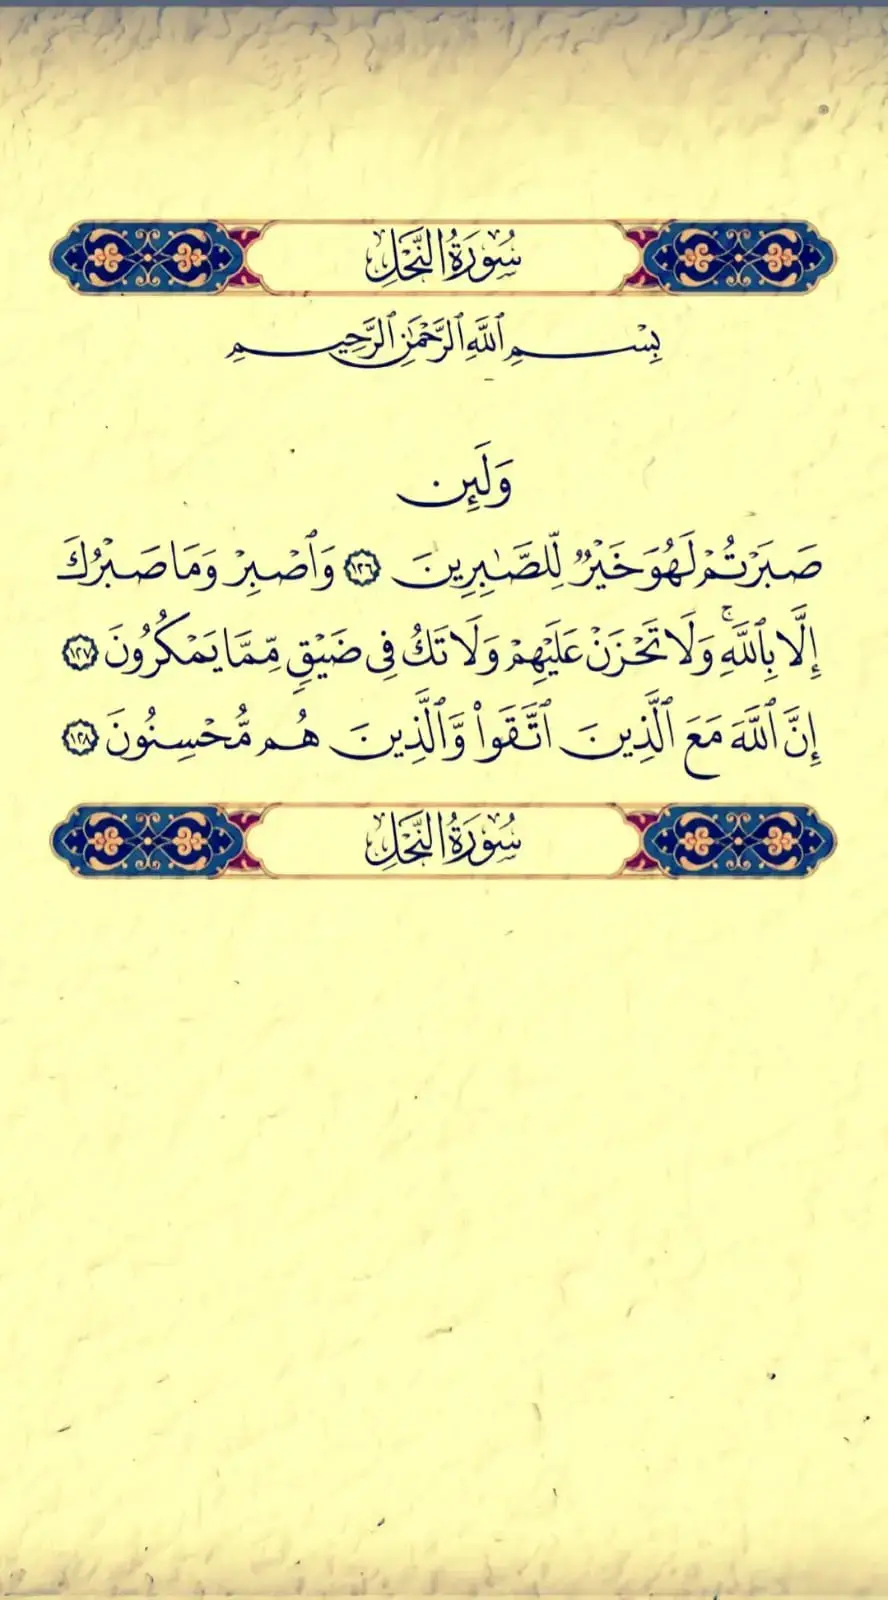 سُورَةُ النَّحْلِ
بِسْمِ ٱللَّهِ ٱلرَّحْمَٰنِ ٱلرَّحِيمِ
وَلَئِن
صَبَرْتُمْ لَهُوَ خَيْرٌ لِّلصَّٰبِرِينَ ١٢٦ وَٱصْبِرْ وَمَا صَبْرُكَ
إِلَّا بِٱللَّهِۚ وَلَا تَحْزَنْ عَلَيْهِمْ وَلَا تَكُ فِى ضَيْقٍ مِّمَّا يَمْكُرُونَ ١٢٧
إِنَّ ٱللَّهَ مَعَ ٱلَّذِينَ ٱتَّقَوا۟ وَّٱلَّذِينَ هُم مُّحْسِنُونَ ١٢٨
سُورَةُ النَّحْلِ